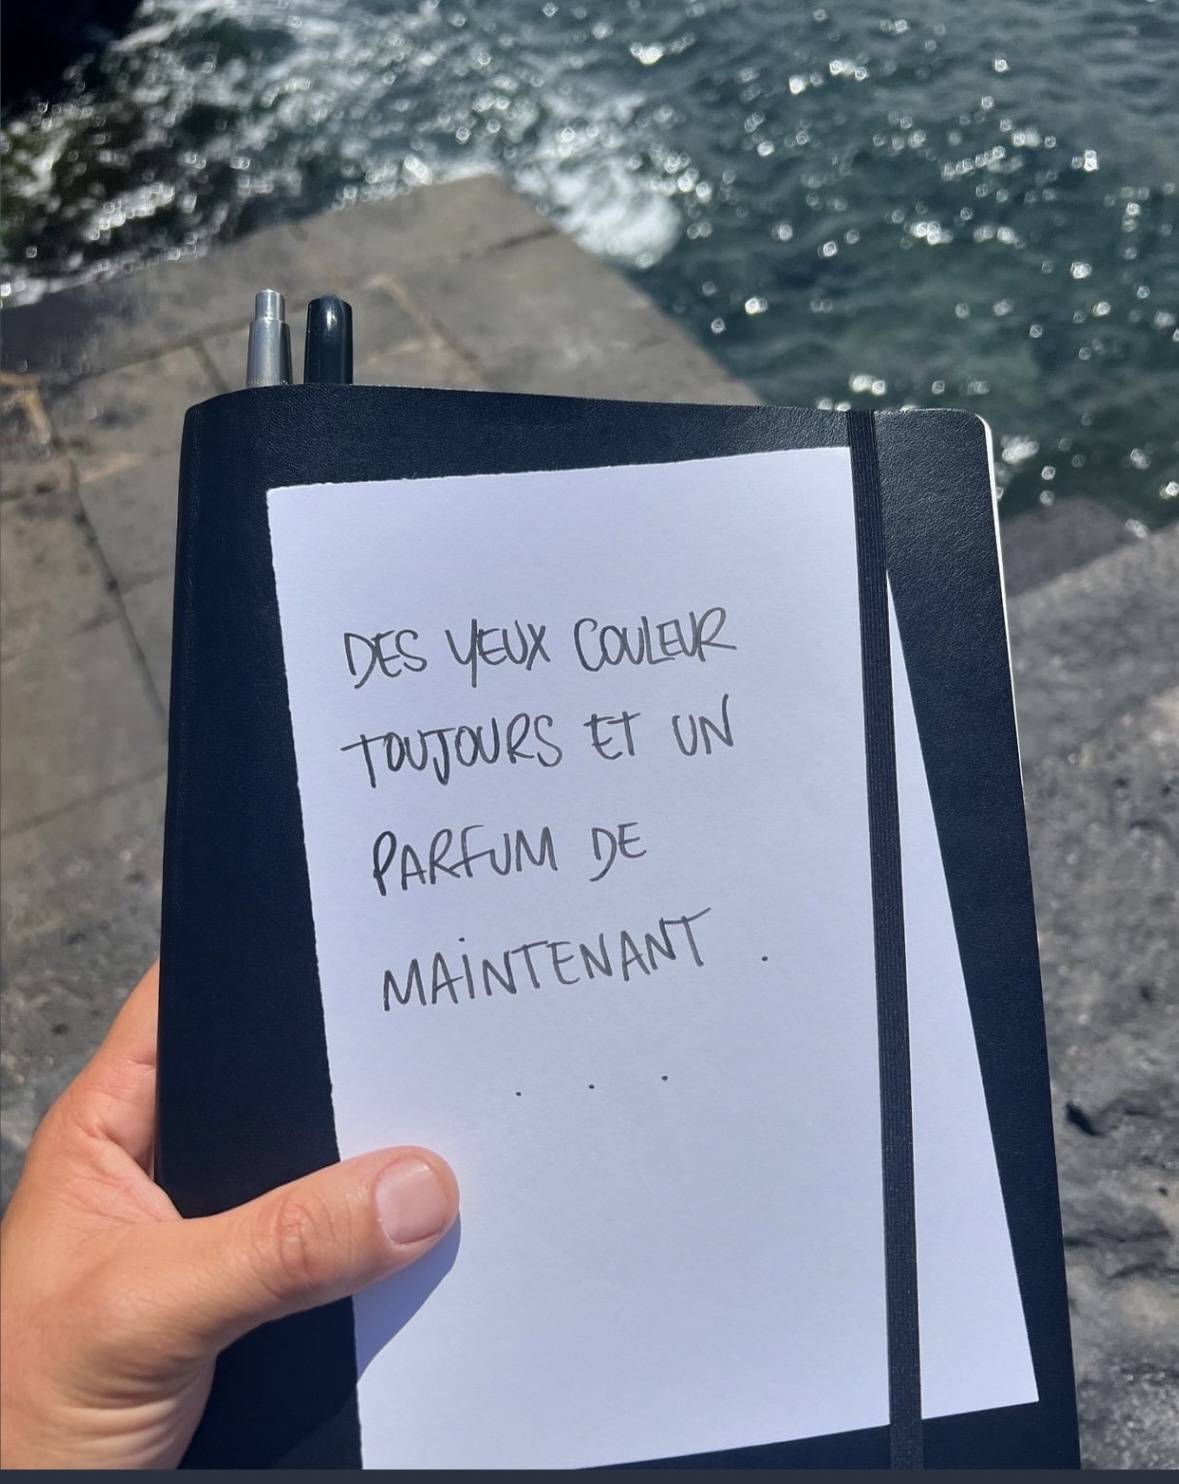 DES YEUX COULEUR
TOUJOURS ET UN
PARFUM DE
MAINTENANT .
. . .